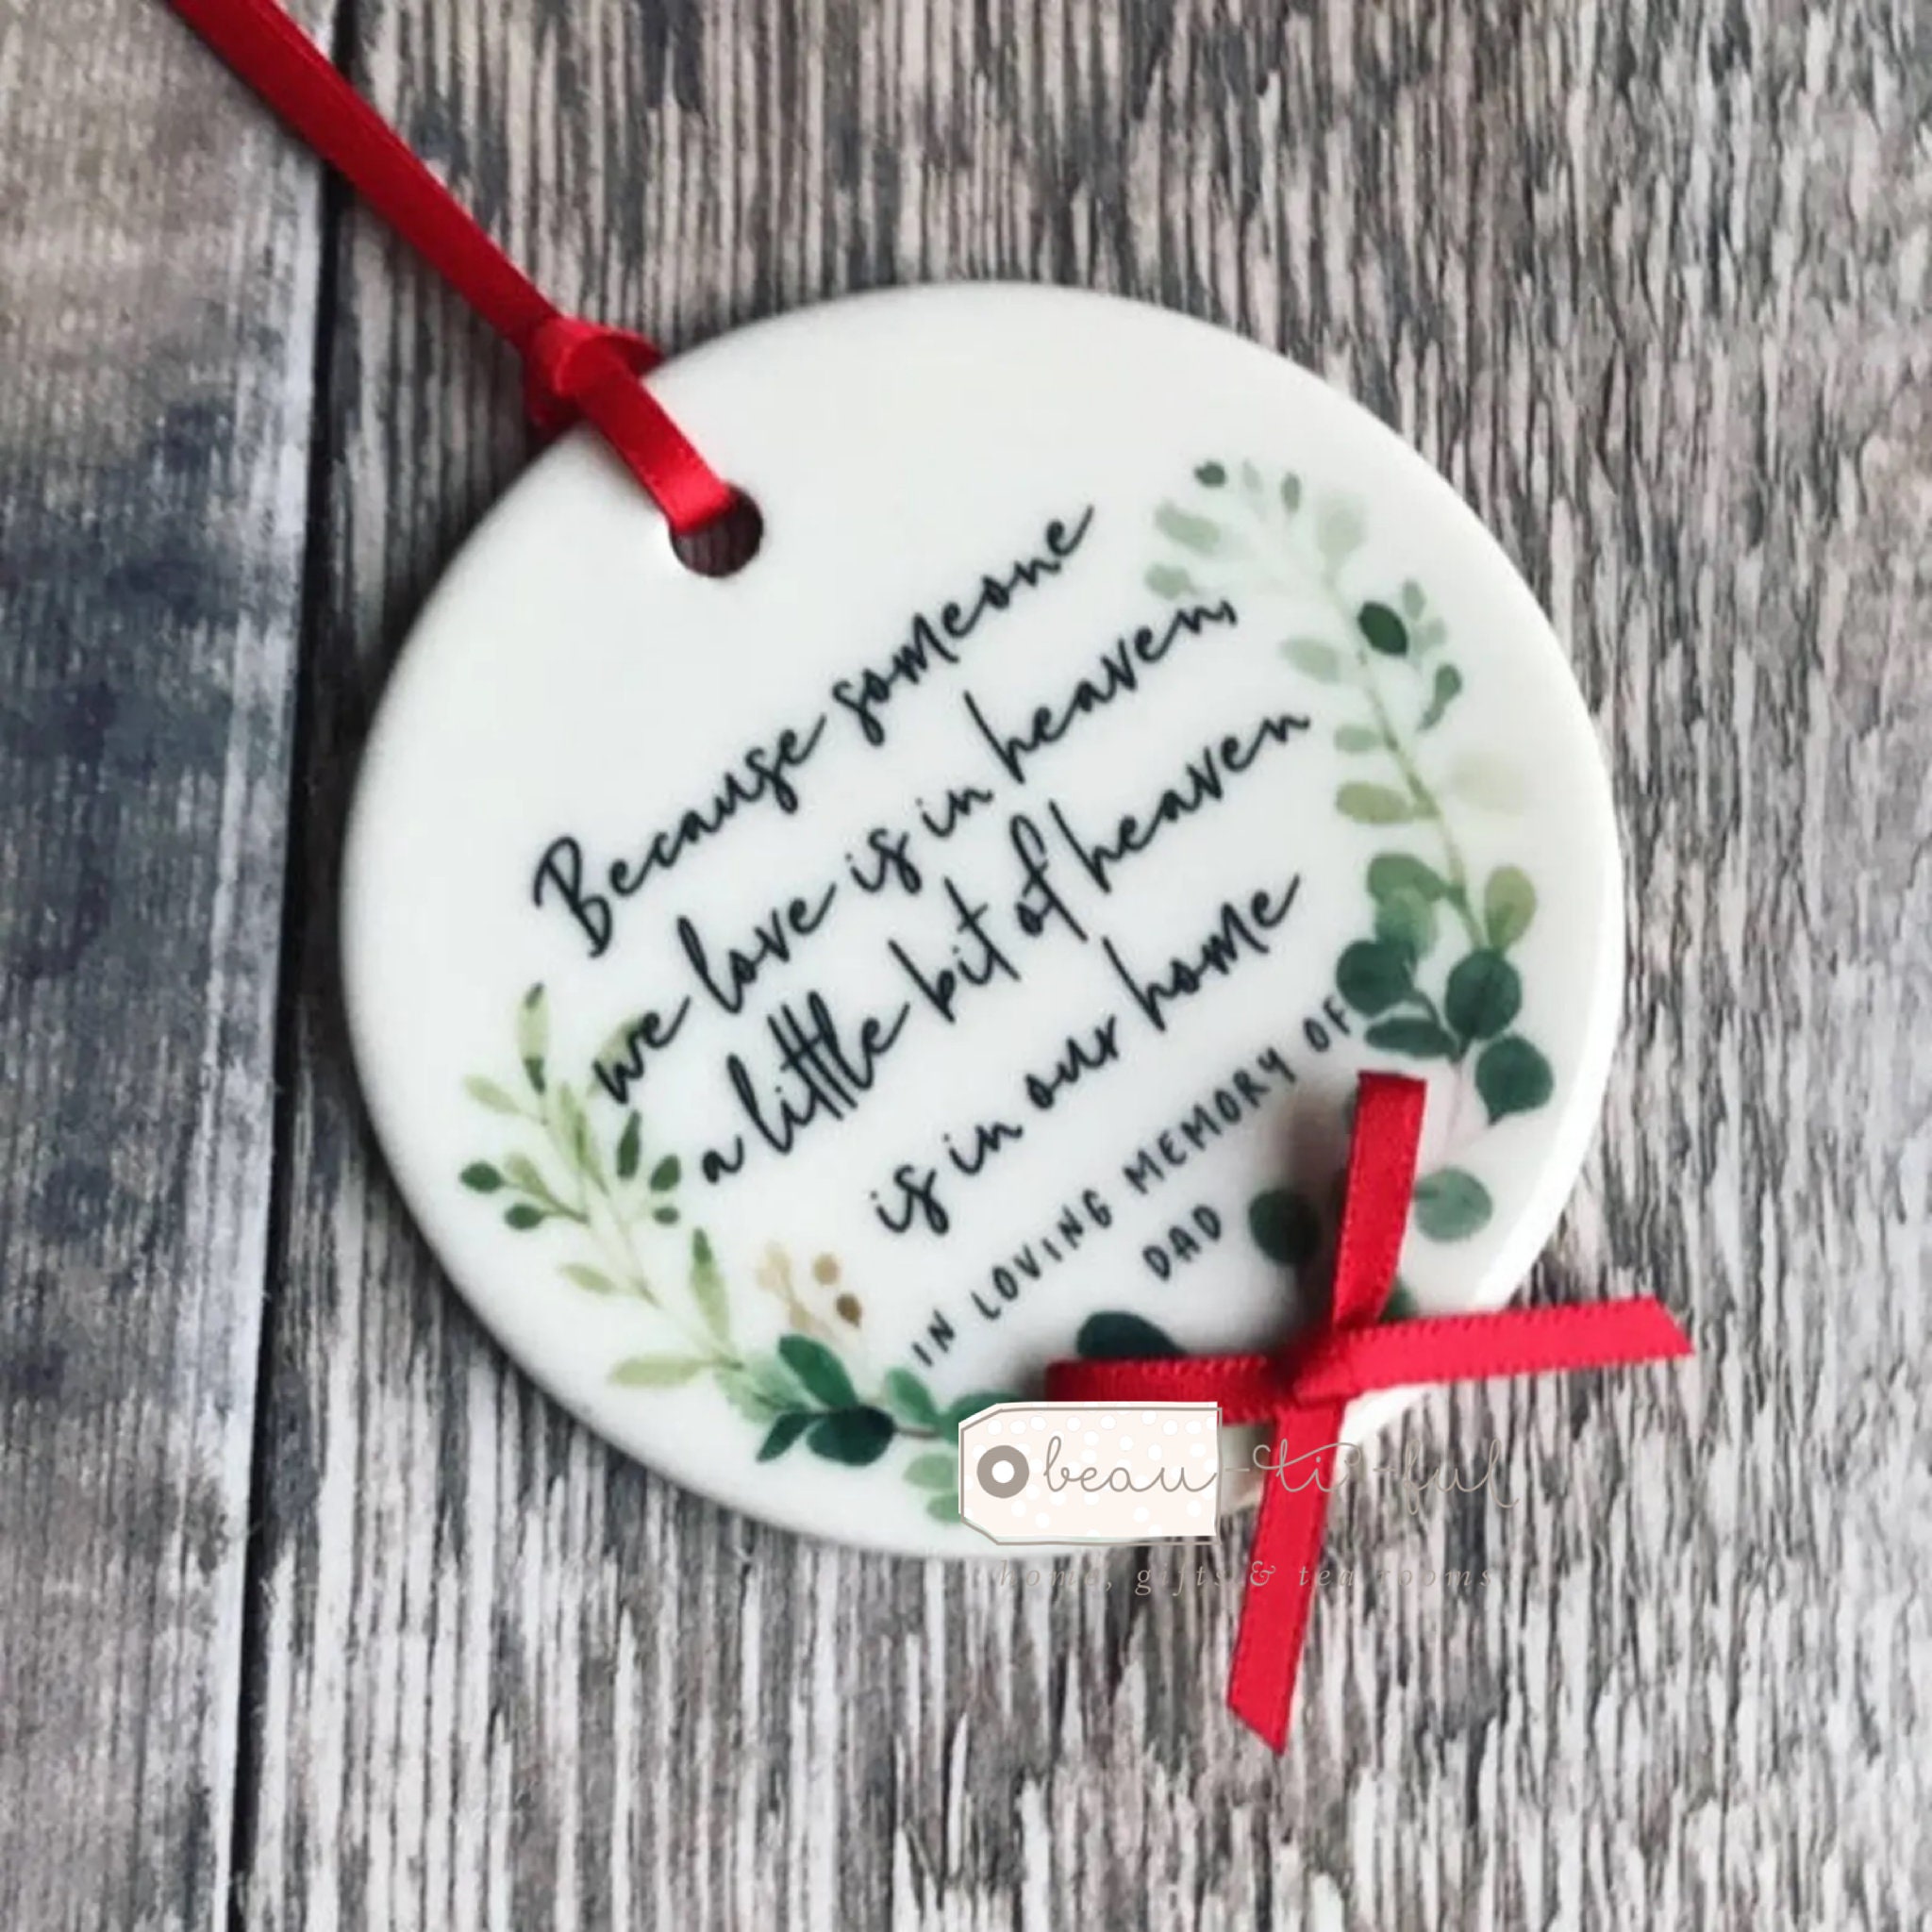 Because someone
we love is in heaven,
a little bit of heaven
is in our home
IN LOVING MEMORY OF
DAD
beau-ti-ful
home, gifts & tea rooms